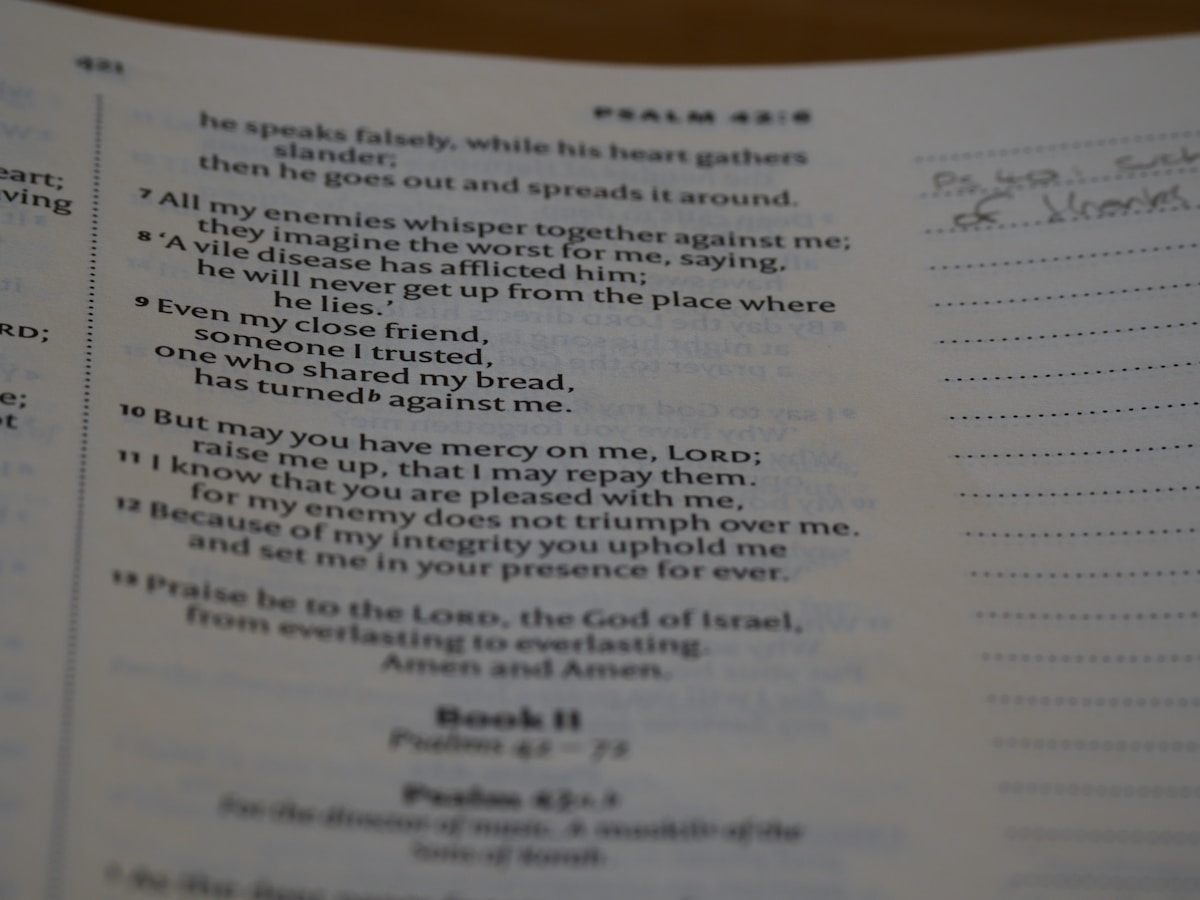 421
PSALM 42:6
eart;
ving
RD;
e;
ot
he speaks falsely, while his heart gathers
slander;
then he goes out and spreads it around.
7 All my enemies whisper together against me;
they imagine the worst for me, saying,
8 ‘A vile disease has afflicted him;
he will never get up from the place where
he lies.’
9 Even my close friend,
someone I trusted,
one who shared my bread,
has turnedb against me.
10 But may you have mercy on me, LORD;
raise me up, that I may repay them.
11 I know that you are pleased with me,
for my enemy does not triumph over me.
12 Because of my integrity you uphold me
and set me in your presence for ever.
13 Praise be to the LORD, the God of Israel,
from everlasting to everlasting.
Amen and Amen.
Book II
Psalms 42 – 72
Psalm 42
For the director of music. A maskil of the
Sons of Korah.
Ps 40: Such
of thanks